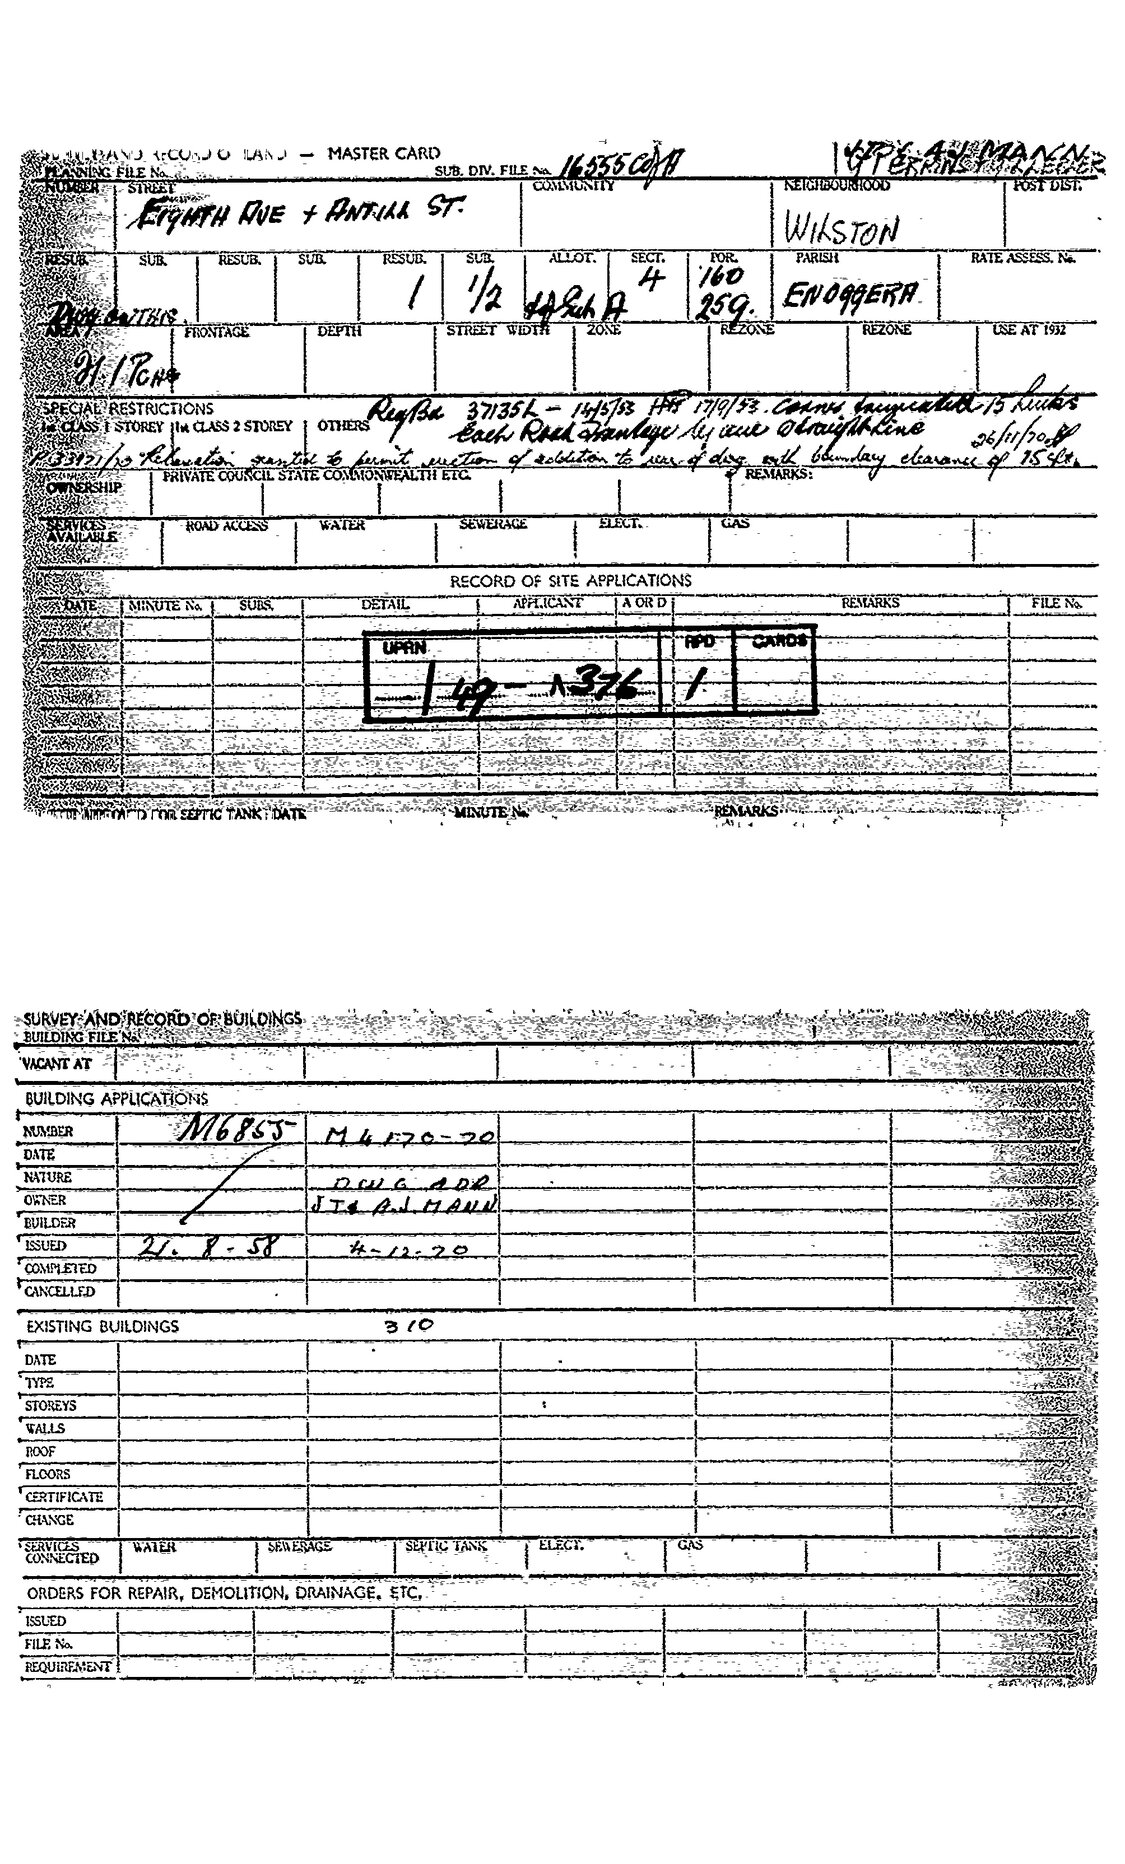 RECORD O LAND — MASTER CARD
PLANNING FILE No. SUB. DIV. FILE No. 16555 J.T. & A.J. MANN
NUMBER STREET COMMUNITY NEIGHBOURHOOD POST DIST.
EIGHTH AVE + ANTILL ST. WILSTON
RESUB. SUB. RESUB. SUB. RESUB. SUB. ALLOT. SECT. POR. PARISH RATE ASSESS. No.
1 1/2 A 4 160 259. ENOGGERA
Dwg on THIS.
AREA FRONTAGE DEPTH STREET WIDTH ZONE REZONE REZONE USE AT 1932
21.1 PCHS
SPECIAL RESTRICTIONS Reg Bd 37135L — 14/5/53 17/9/53. Corner truncated 15 Links
1st CLASS 1 STOREY 1st CLASS 2 STOREY OTHERS Each Road Frontage by one Straight Line 26/11/70
Relaxation granted to permit erection of addition to rear of dwg with boundary clearance of 15 ft.
OWNERSHIP PRIVATE COUNCIL STATE COMMONWEALTH ETC. REMARKS:
SERVICES AVAILABLE ROAD ACCESS WATER SEWERAGE ELECT. GAS
RECORD OF SITE APPLICATIONS
DATE MINUTE No. SUBS. DETAIL APPLICANT A OR D REMARKS FILE No.
UPRN RPD CARDS
1 49 — 376 1
FOR SEPTIC TANK: DATE MINUTE No. REMARKS
SURVEY AND RECORD OF BUILDINGS
BUILDING FILE No.
VACANT AT
BUILDING APPLICATIONS
NUMBER M6855 M4170-70
DATE
NATURE DWG ADD
OWNER J T & A.J. MANN
BUILDER
ISSUED 21. 8 - 58 4-12-70
COMPLETED
CANCELLED
EXISTING BUILDINGS 310
DATE
TYPE
STOREYS
WALLS
ROOF
FLOORS
CERTIFICATE
CHANGE
SERVICES CONNECTED WATER SEWERAGE SEPTIC TANK ELECT. GAS
ORDERS FOR REPAIR, DEMOLITION, DRAINAGE, ETC.
ISSUED
FILE No.
REQUIREMENT